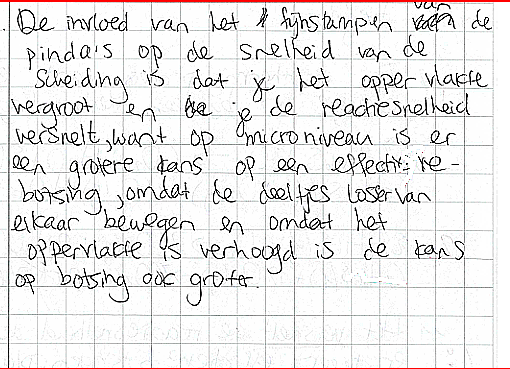 De invloed van het fijnstampen van de
pinda's op de snelheid van de
Scheiding is dat je het oppervlakte
vergroot en je de reactiesnelheid
versnelt, want op microniveau is er
een grotere kans op een effectieve
botsing, omdat de deeltjes loser van
elkaar bewegen en omdat het
oppervlakte is verhoogd is de kans
op botsing ook groter.